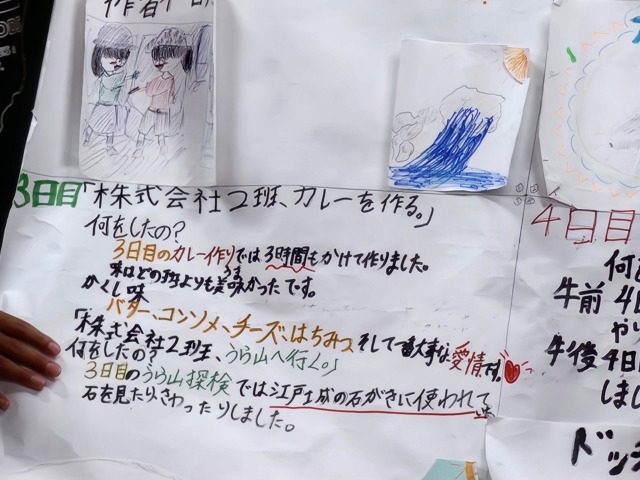 作者
3日目「株式会社2班、カレーを作る。」
何をしたの?
3日目のカレー作りでは3時間もかけて作りました。
味はどの班よりも美味かったです。
うま
かくし味
バター、コンソメ、チーズ、はちみつ そして一番大事な愛情です。
「株式会社2班、うら山へ行く。」
何をしたの?
3日目のうら山探検では江戸城の石がきに使われて
いた
石を見たりさわったりしました。
4日目
何
午前 4日
や
午後 4日
しま
ドッ